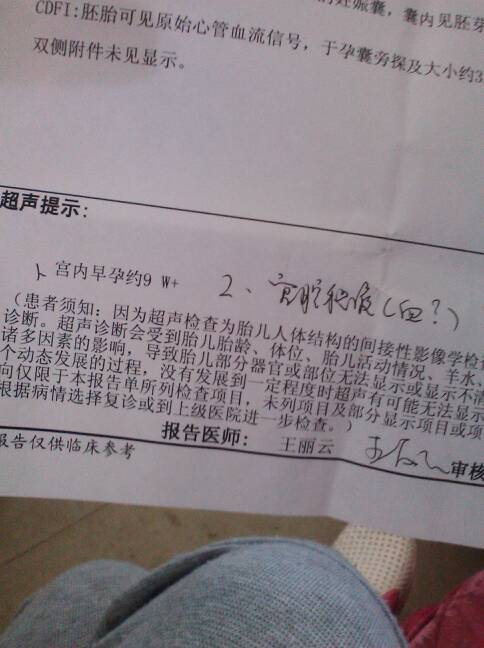 的妊娠囊，囊内见胚芽
CDFI:胚胎可见原始心管血流信号，于孕囊旁探及大小约3
双侧附件未见显示。
超声提示：
1、宫内早孕约9 W+ 2、宫腔积液（血？）
（患者须知：因为超声检查为胎儿人体结构的间接性影像学检
诊断。超声诊断会受到胎儿胎龄、体位、胎儿活动情况、羊水、
诸多因素的影响，导致胎儿部分器官或部位无法显示或显示不
个动态发展的过程，没有发展到一定程度时超声有可能无法显示
向仅限于本报告单所列检查项目，未列项目及部分显示项目或项
根据病情选择复诊或到上级医院进一步检查。）
报告医师： 王丽云 审核
报告仅供临床参考